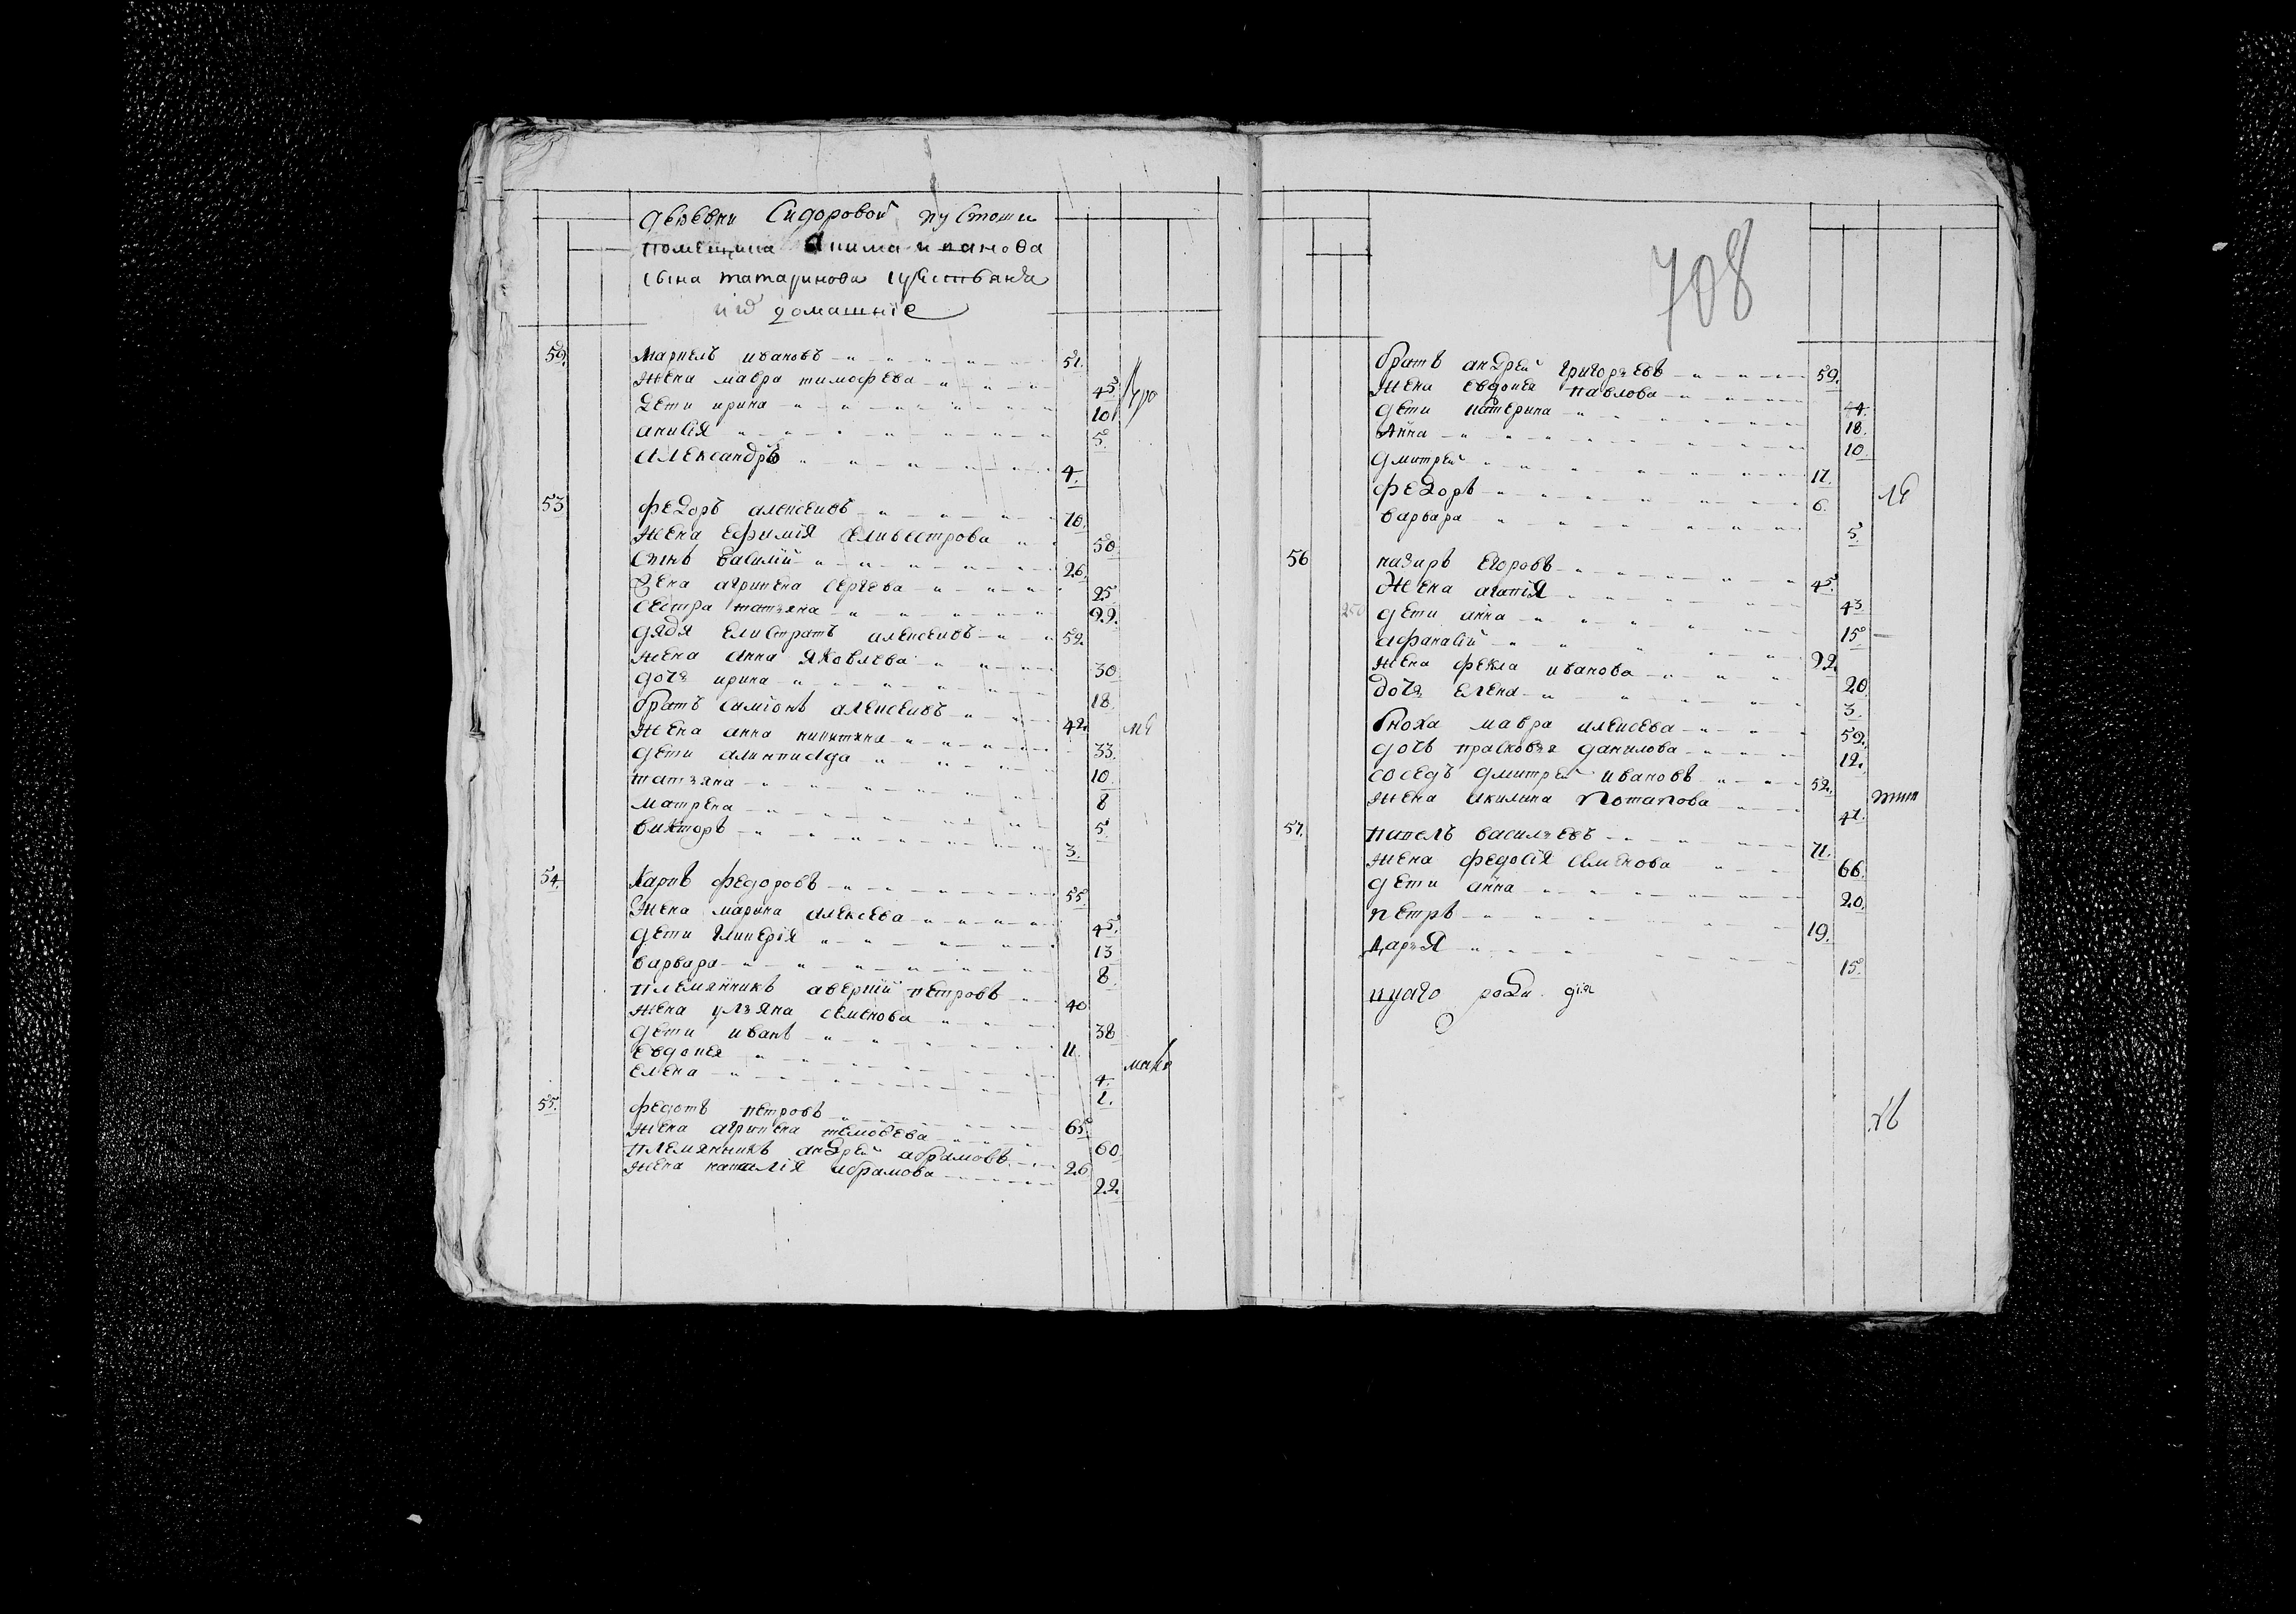 деревни Сидоровой пустоши
помещика Акима иванова
сына татаринова крестьяня
и домашніе
52. Маркелъ ивановъ 51.
жена мавра тимофѣева 45
дети ирина 10
анисія 5.
Александръ 4.
53 федоръ алексеивъ 70.
жена ефимія Селивестрова 50
сынъ василій 26.
жена агрипена сергѣева 25
сестра татьяна 22.
дядя елистратъ алексеивъ 52.
жена анна яковлева 30
дочь ирина 18.
братъ симіонъ алексеивъ 42.
жена анна никитина 33.
дети алимпиада 10.
татьяна 8
матрена 5.
викторъ 3.
54. Карпъ федоровъ 55.
жена марина алексева 45.
дети гликерія 13
варвара 8
племянникъ аверкій петровъ 40
жена ульяна семенова 38
дети иванъ 11.
евдокия 4.
елена 1.
55. федотъ петровъ 65
жена агрипена 60
племянникъ андрей абрамовъ 26
жена наталія абрамова 22.
708
братъ андрей григорьевъ 59.
жена евдокия павлова 44.
дети катерина 18.
Анна 10.
дмитрей 17.
федоръ 6.
варвара 5.
56 назаръ егоровъ 45.
жена агапія 43
дети анна 15
афанасій 22.
жена фекла иванова 20.
дочь елена 3.
сноха мавра алексева 52.
дочь прасковья данилова 12.
соседъ дмитрей ивановъ 52.
жена акилина потапова 41.
57. павелъ васильевъ 71.
жена федосія семенова 66.
дети анна 20.
петръ 19.
дарья 15.